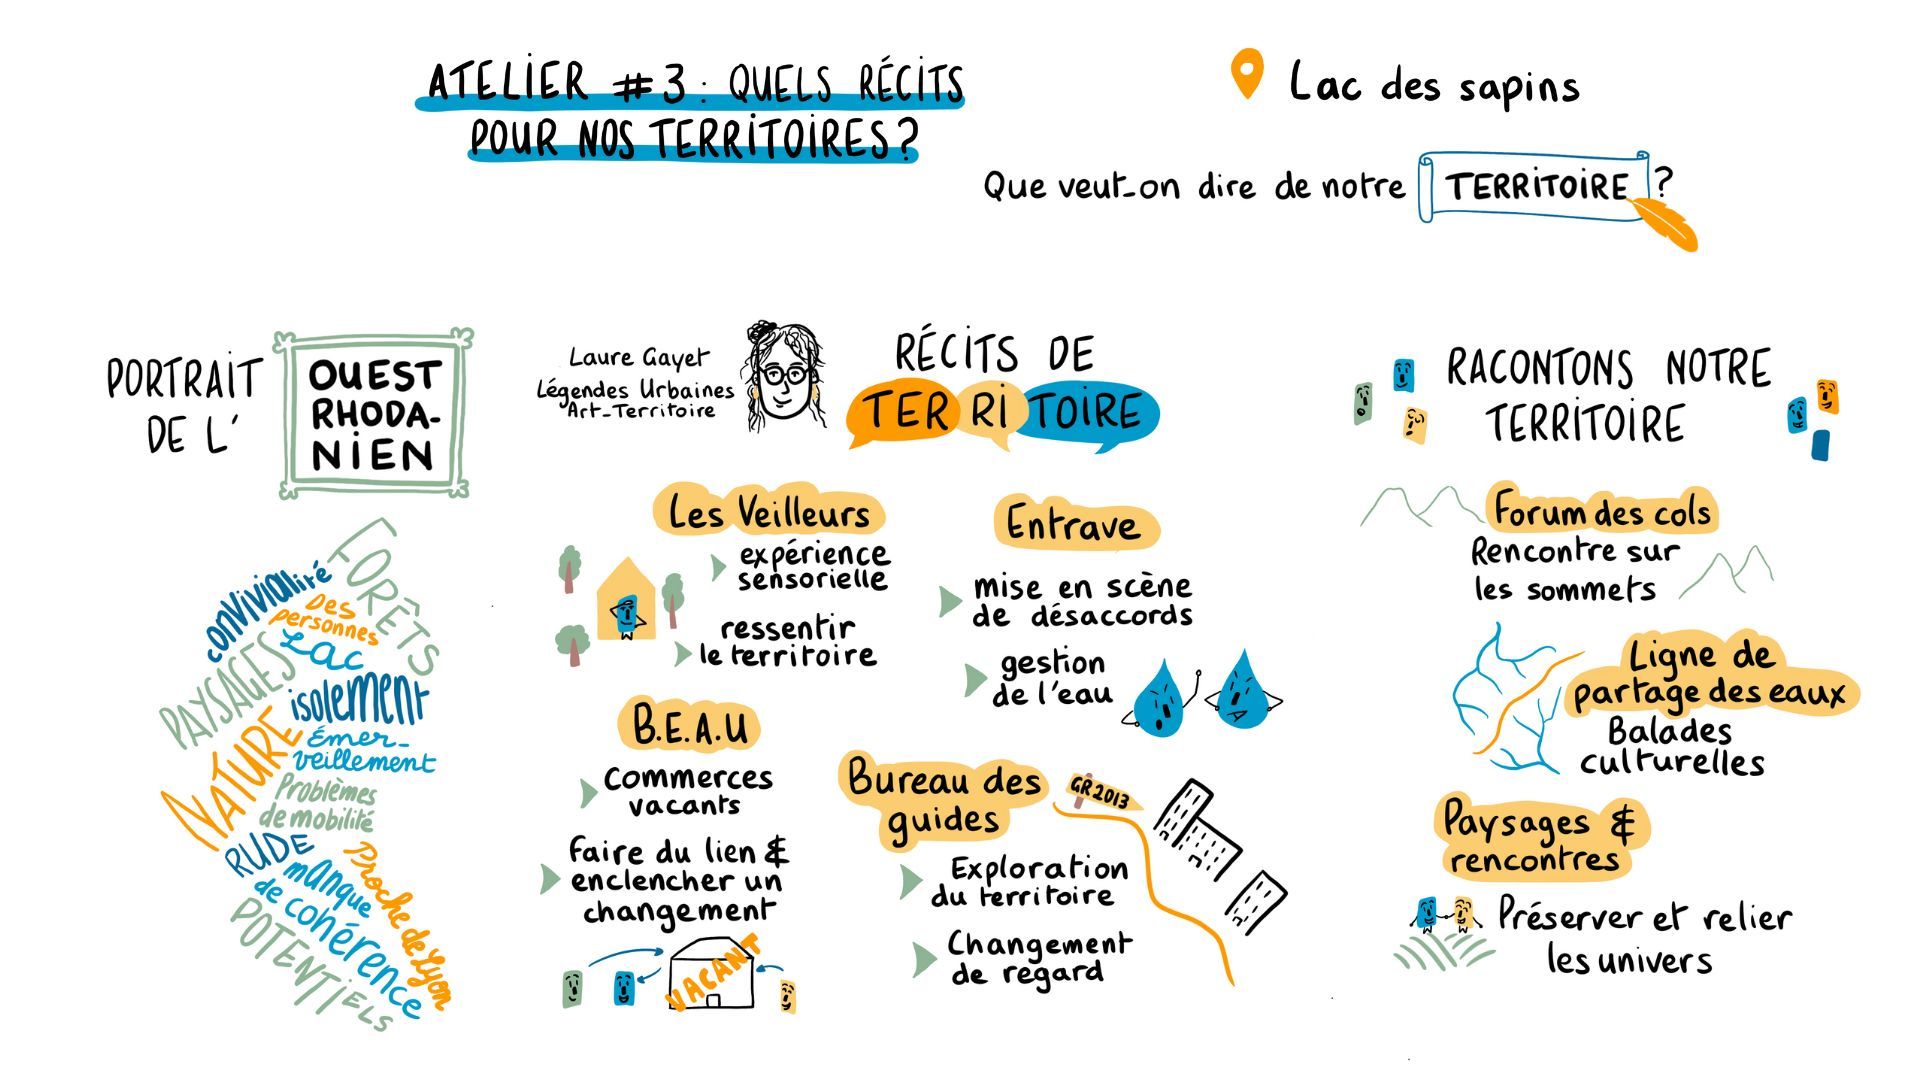 ATELIER #3 : QUELS RÉCITS
POUR NOS TERRITOIRES ?
Lac des sapins
Que veut-on dire de notre TERRITOIRE ?
PORTRAIT
DE L'
OUEST
RHODA-
NIEN
FORÊTS
convivialité
Des
personnes
Lac
PAYSAGES
isolement
NATURE
Émer-
veillement
Problèmes
de mobilité
RUDE
Proche de Lyon
manque
de cohérence
POTENTIELS
Laure Gayet
Légendes Urbaines
Art-Territoire
RÉCITS DE
TERRITOIRE
Les Veilleurs
expérience
sensorielle
ressentir
le territoire
B.E.A.U
Commerces
vacants
Faire du lien &
enclencher un
changement
VACANT
Entrave
mise en scène
de désaccords
gestion
de l'eau
Bureau des
guides
GR2013
Exploration
du territoire
Changement
de regard
RACONTONS NOTRE
TERRITOIRE
Forum des cols
Rencontre sur
les sommets
Ligne de
partage des eaux
Balades
culturelles
Paysages &
rencontres
Préserver et relier
les univers